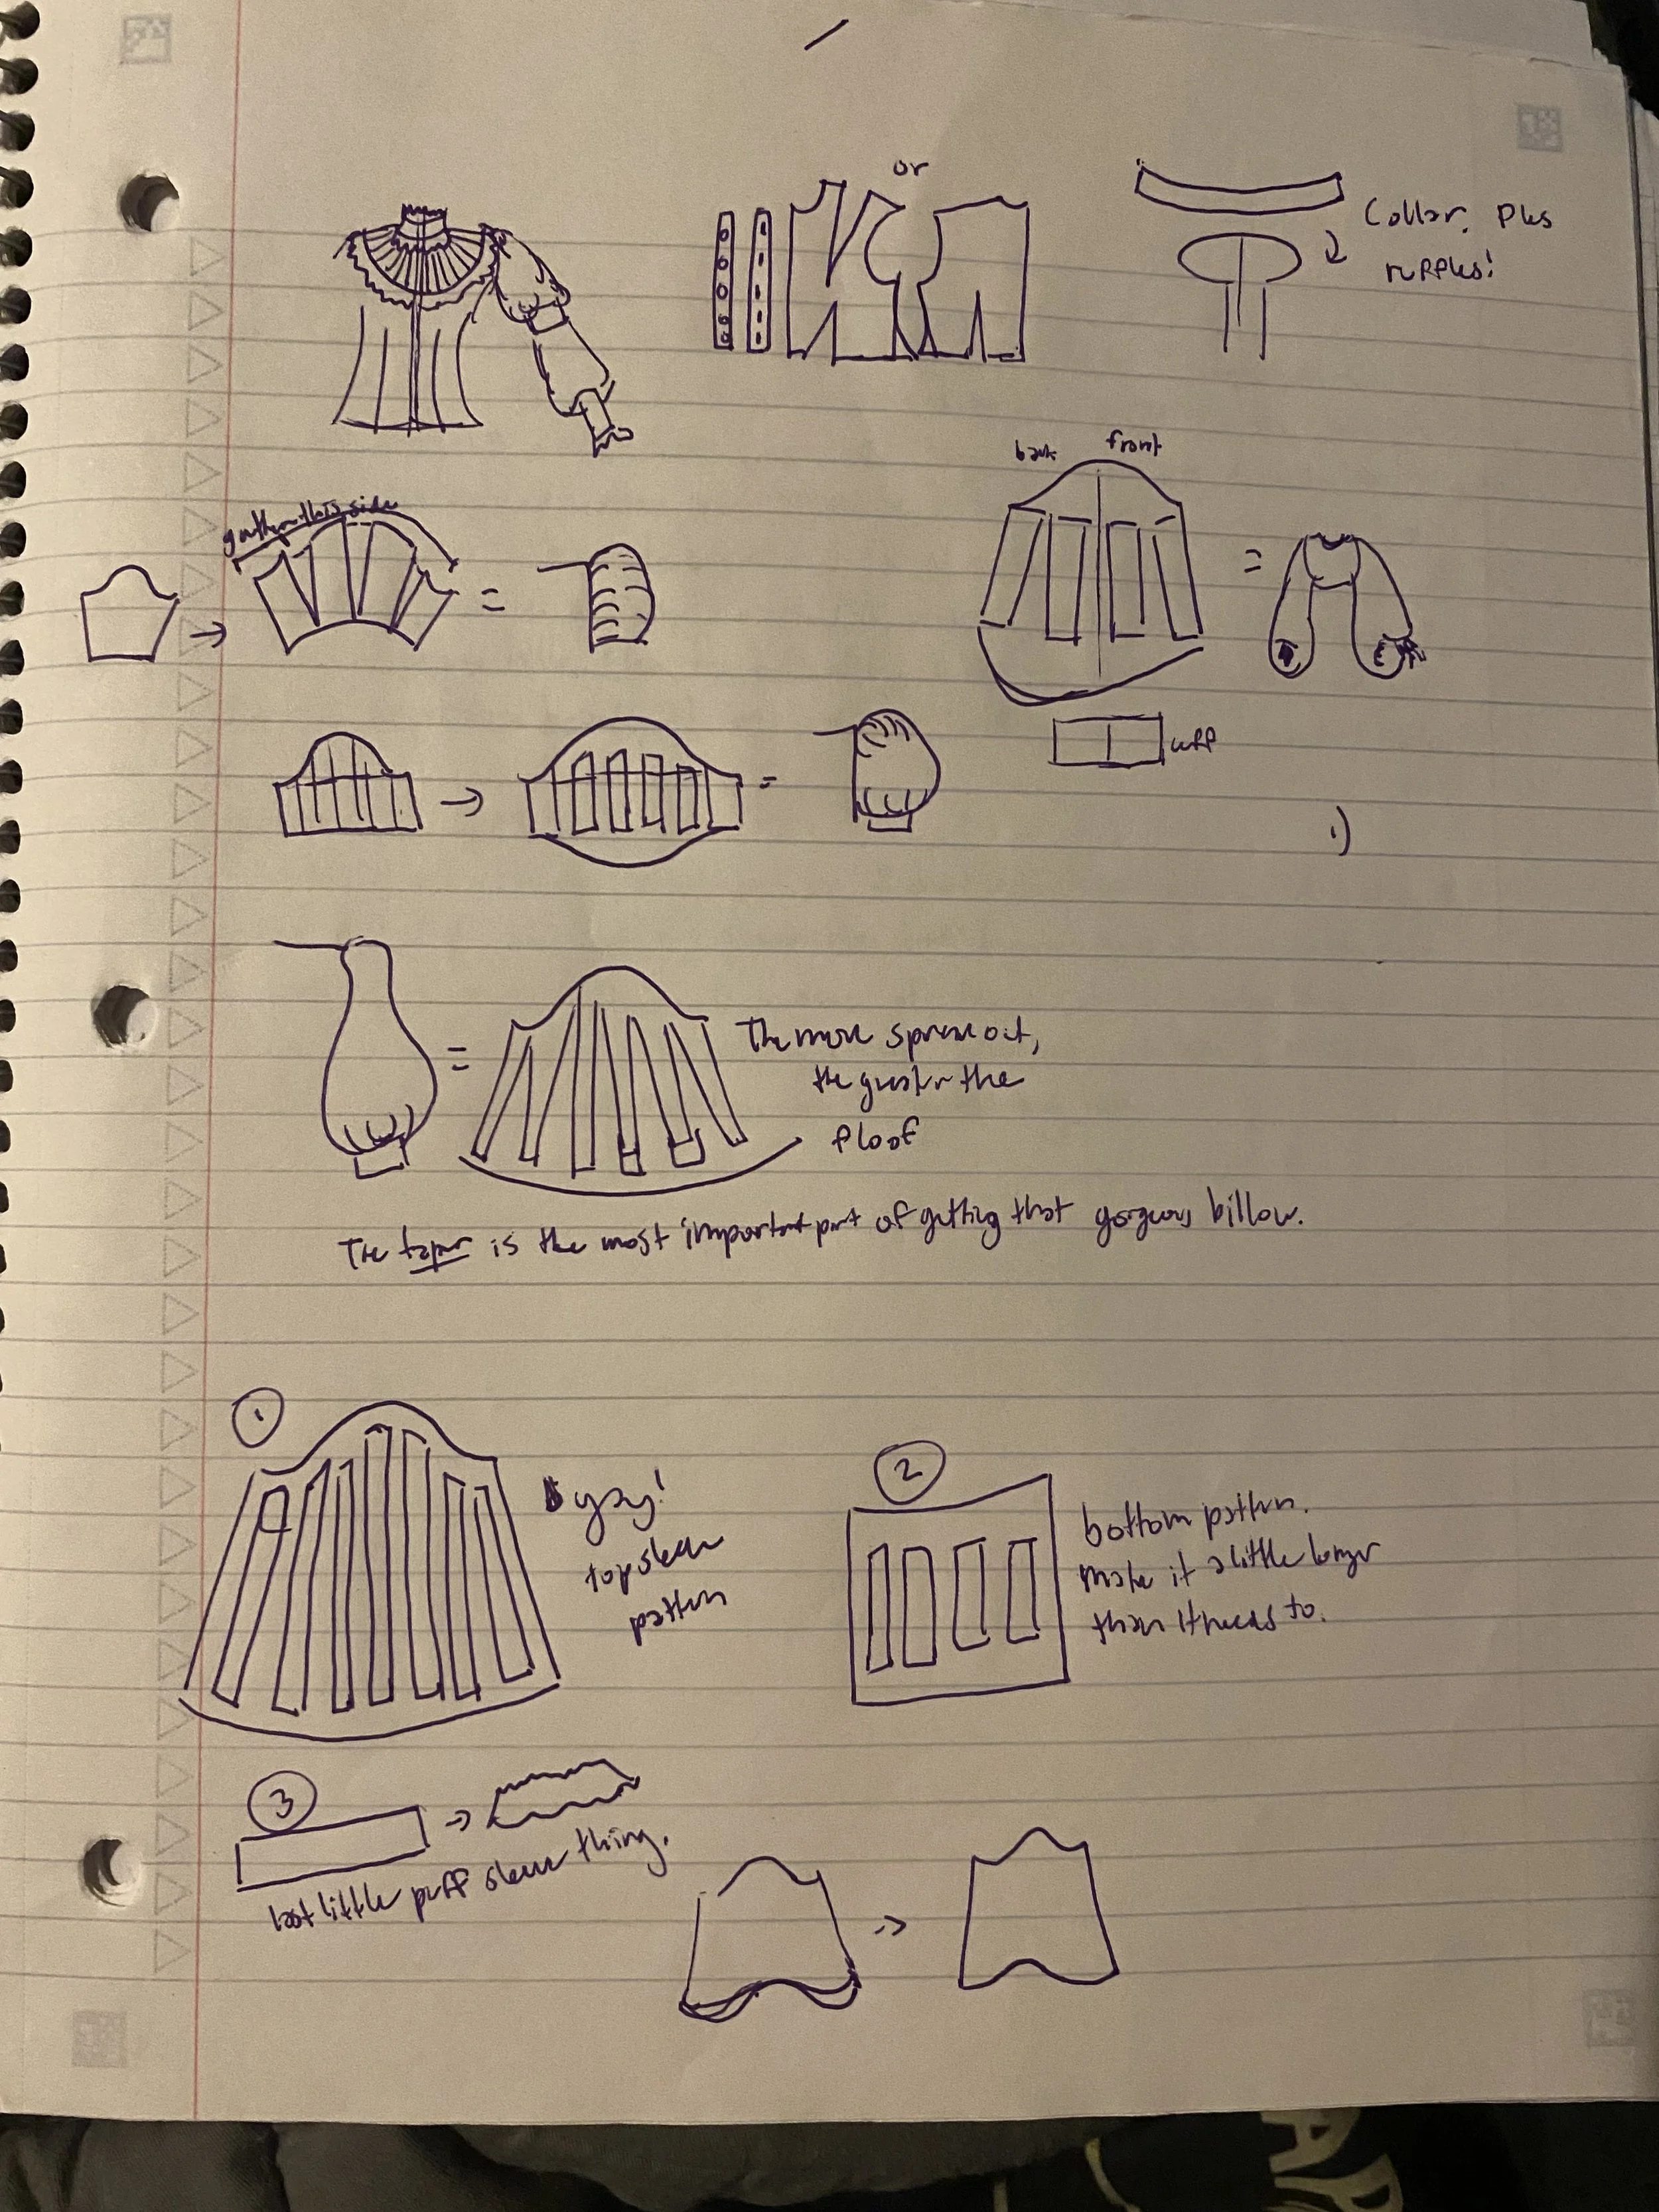 or
Collar. Plus
ruffles!
back front
gather this side
=
=
cuff
=
1)
=
The more spread out,
the greater the
floof
The taper is the most important part of getting that gorgeous billow.
1
yay!
top sleeve
pattern
2
bottom pattern.
Make it a little longer
than it needs to.
3
last little puff sleeve thing.